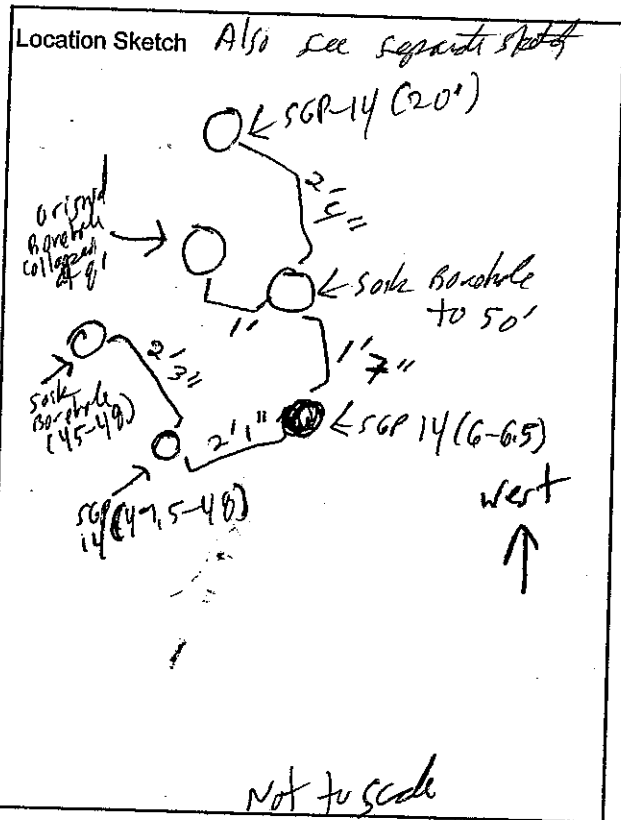 Location Sketch Also see separate sketch
← SGP-14 (20')
2'
5"
Original
Borehole
Collapsed
at 8'
1'
← Soil Borehole
to 50'
2'
3"
1'
7"
Soil
Borehole
(45-48)
2'1"
← SGP 14 (6-6.5)
SGP
14 (47.5-48)
West
↑
Not to scale